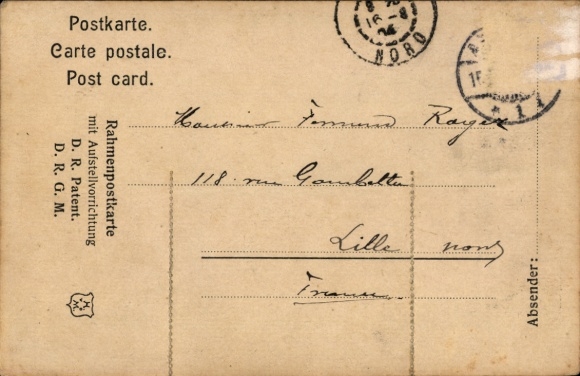 Postkarte.
Carte postale.
Post card.
Rahmenpostkarte
mit Aufstellvorrichtung
D. R. Patent.
D. R. G. M.
16 - 8
NORD
Monsieur Fernand
118 rue Gambetta
Lille Nord
France
Absender: